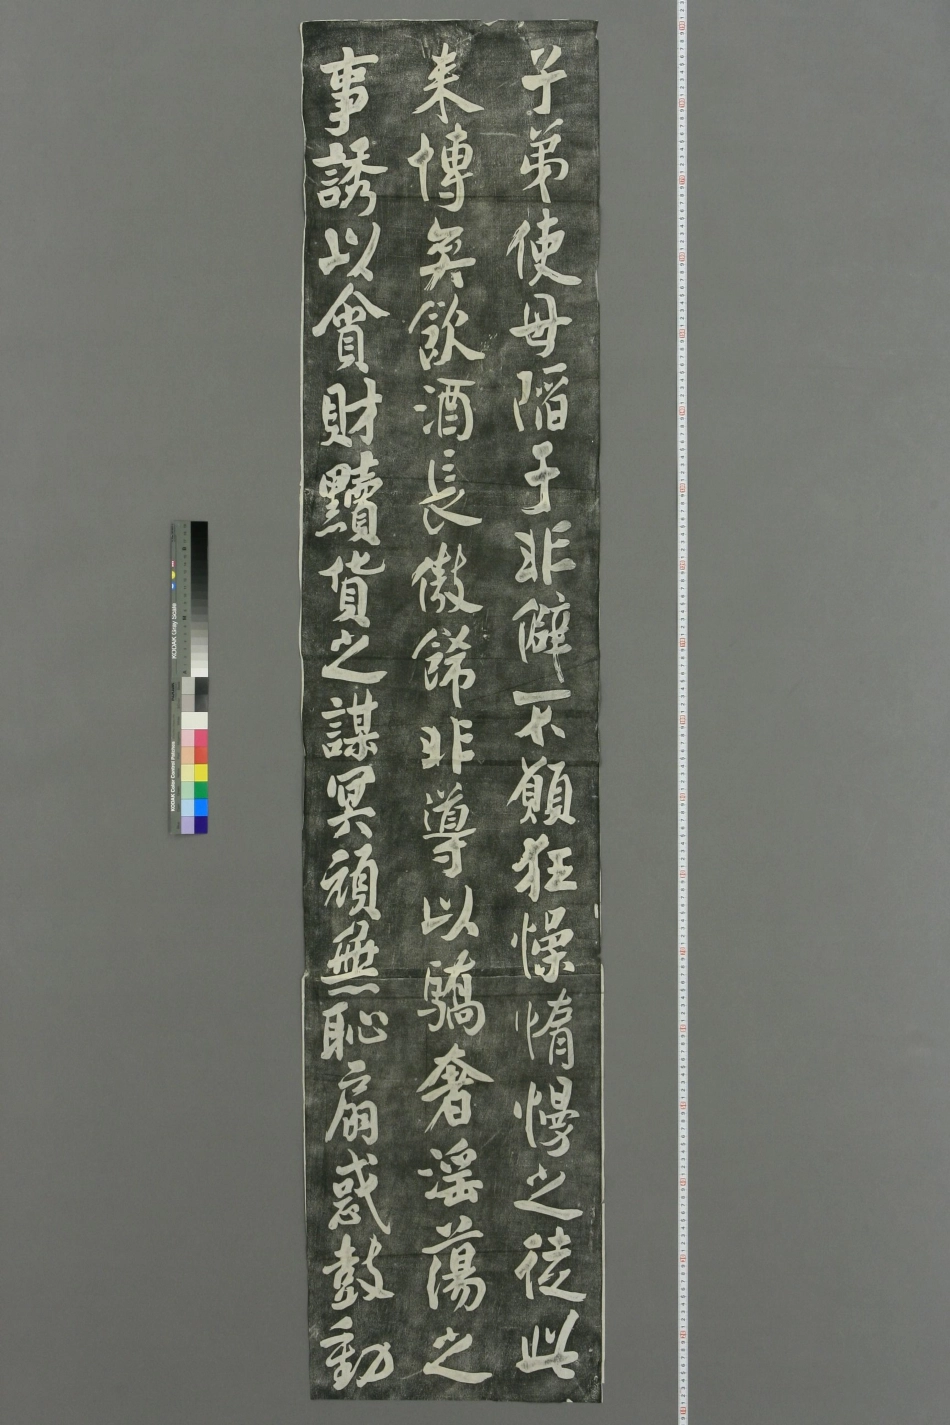 子弟使毋陷于非僻不願狂懆惰慢之徒此
来博奕飲酒長傲飾非導以驕奢淫蕩之
事誘以貪財黷貨之謀冥頑無恥扇惑鼓動